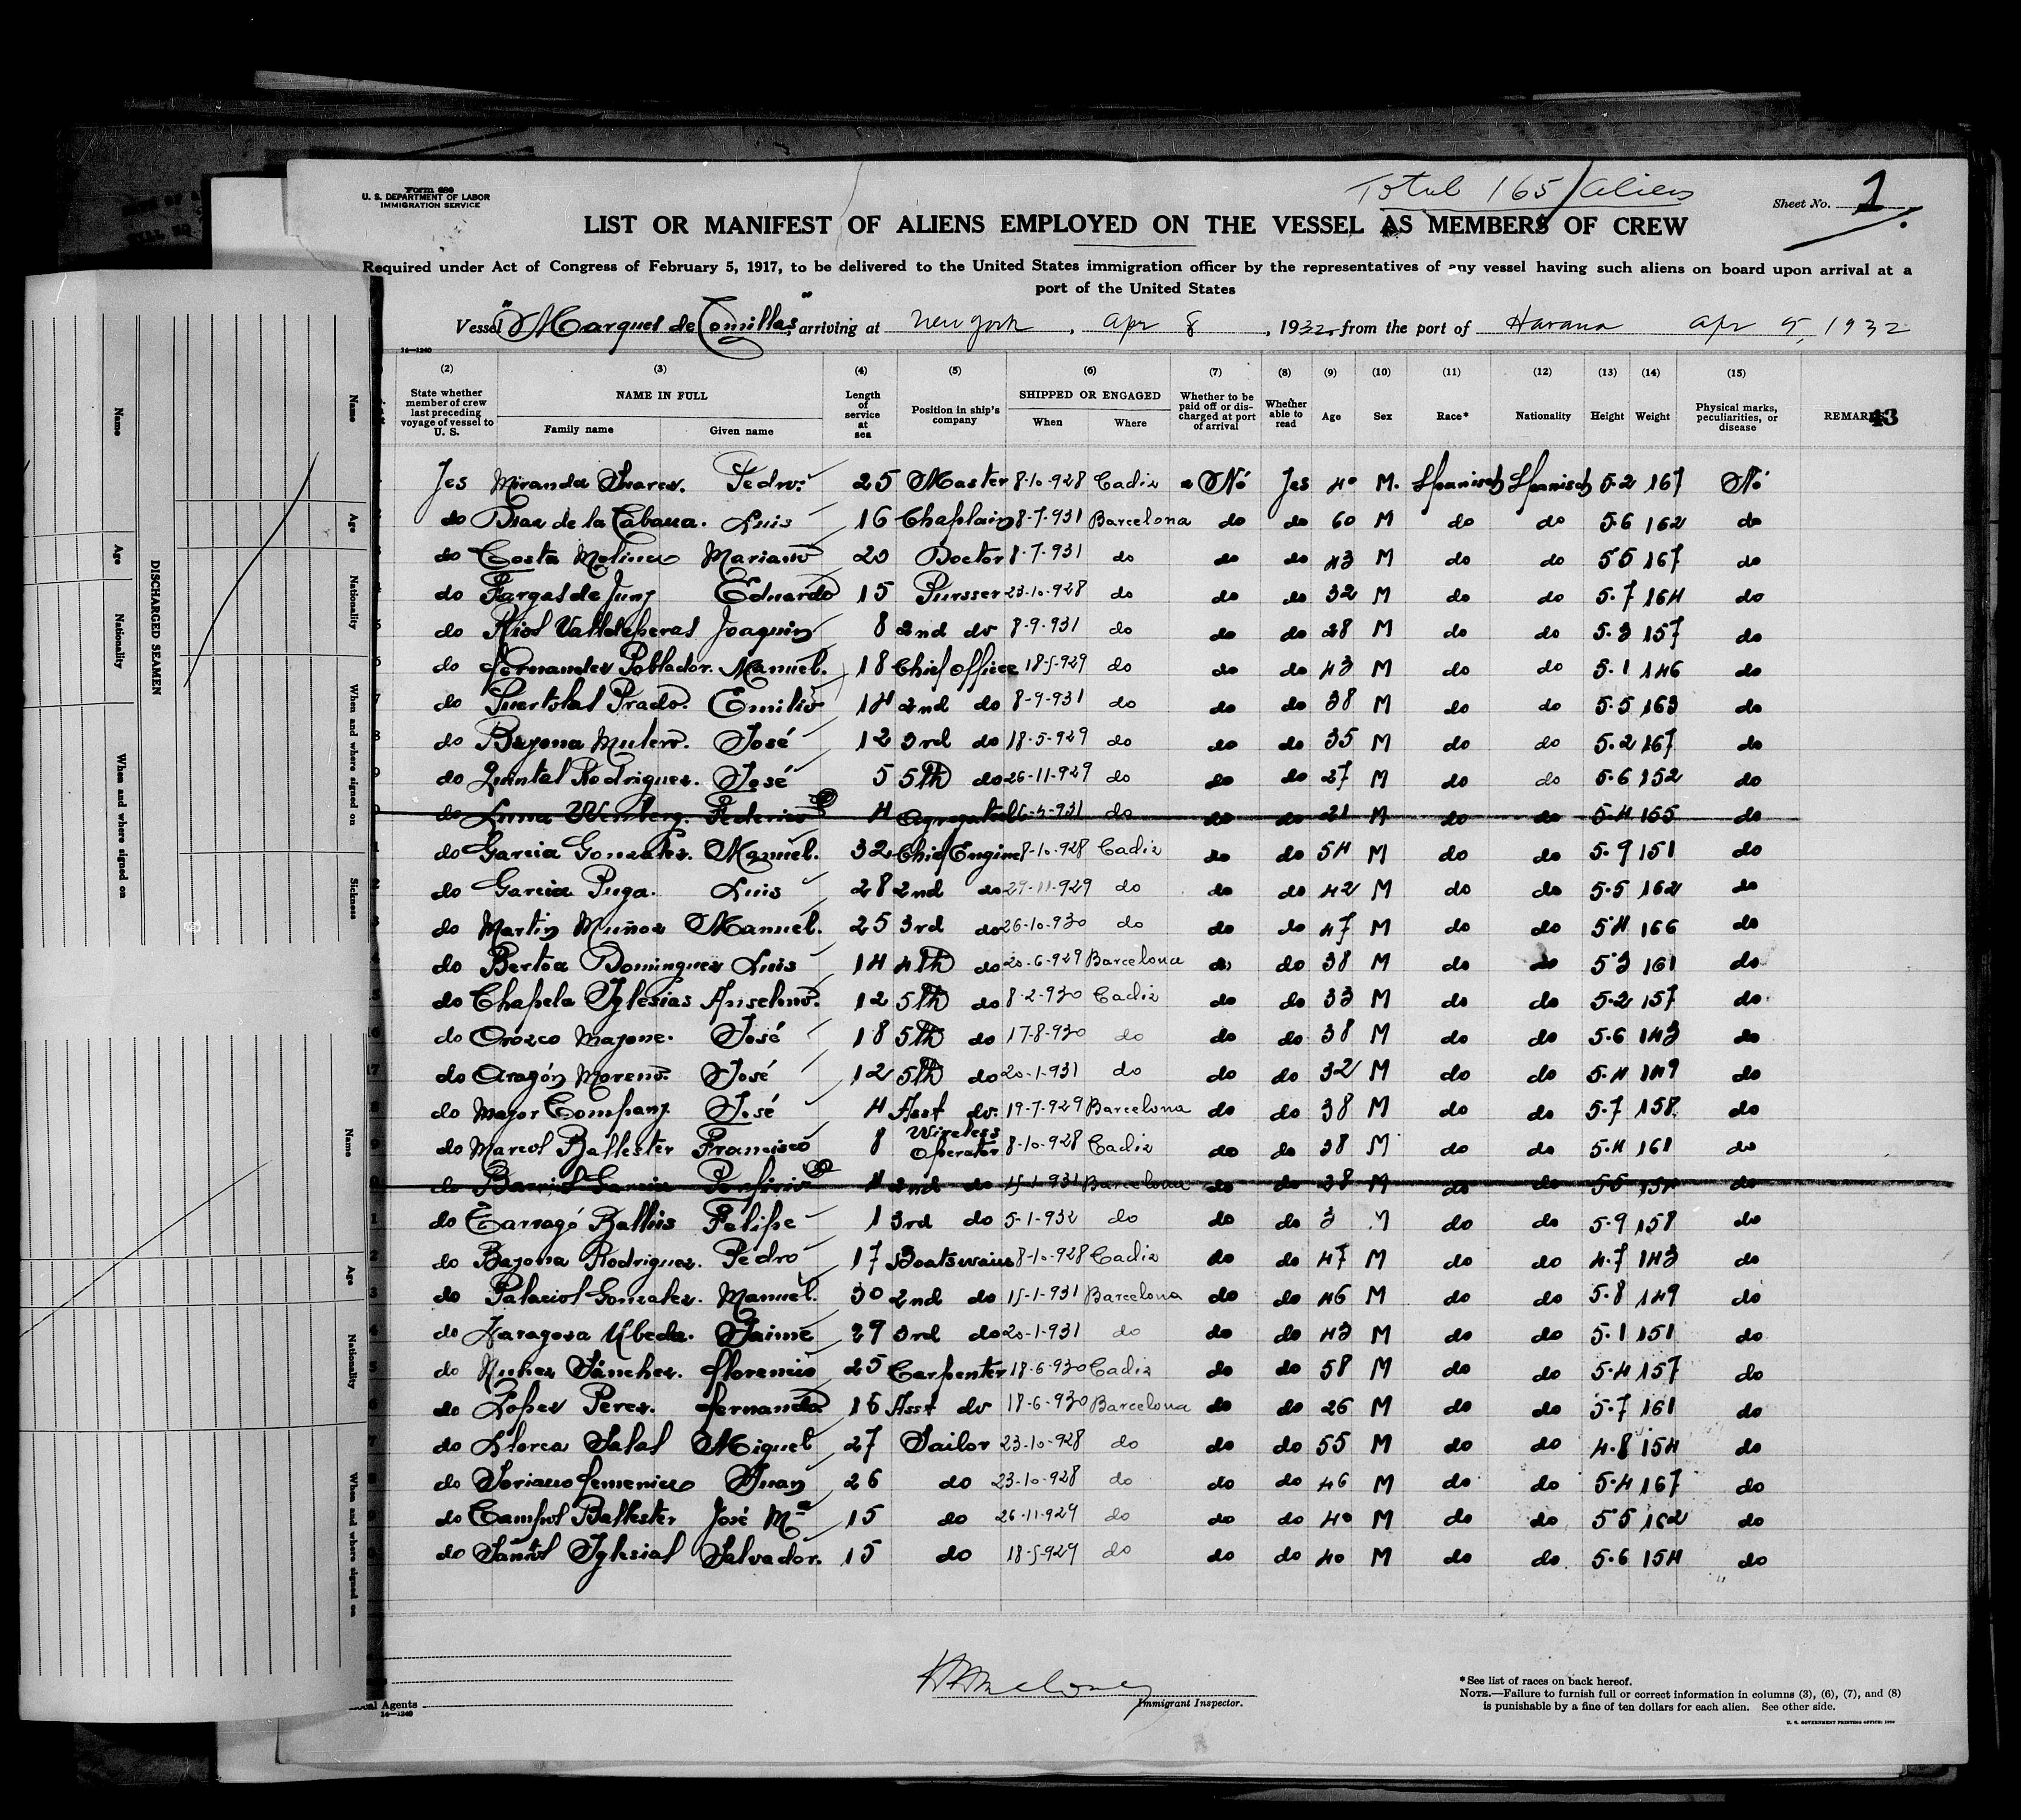 Form 680
U. S. DEPARTMENT OF LABOR
IMMIGRATION SERVICE
Total 165 aliens
Sheet No. 1
LIST OR MANIFEST OF ALIENS EMPLOYED ON THE VESSEL AS MEMBERS OF CREW
Required under Act of Congress of February 5, 1917, to be delivered to the United States immigration officer by the representatives of any vessel having such aliens on board upon arrival at a
port of the United States
Vessel "Marques de Comillas", arriving at New York, Apr 8, 1932, from the port of Havana Apr 5, 1932
14—1240
(2) (3) (4) (5) (6) (7) (8) (9) (10) (11) (12) (13) (14) (15)
State whether member of crew last preceding voyage of vessel to U. S.
NAME IN FULL
Family name Given name
Length of service at sea
Position in ship's company
SHIPPED OR ENGAGED
When Where
Whether to be paid off or discharged at port of arrival
Whether able to read
Age Sex Race* Nationality Height Weight
Physical marks, peculiarities, or disease
REMARKS
43
Jes Miranda Suarez. Pedro. 25 Master 8-10-928 Cadiz No Jes 40 M. Spanisch Spanisch 5.2 167 No
do de la Cabana. Luis 16 Chaplain 8-7-931 Barcelona do do 60 M do do 5.6 162 do
do Costa Molinero Mariano 20 Doctor 8-7-931 do do do 43 M do do 5.5 167 do
do Fargas de Juny Eduardo 15 Pursser 23-10-928 do do do 32 M do do 5.7 164 do
do Rios Valldeperas Joaquin 8 2nd do 8-9-931 do do do 28 M do do 5.3 157 do
do Fernandez Poblador. Manuel. 18 Chief Officer 18-5-929 do do do 43 M do do 5.1 146 do
do Puertolas Prado. Emilio 14 2nd do 8-9-931 do do do 38 M do do 5.5 163 do
do Bayona Mulero. José 12 3rd do 18-5-929 do do do 35 M do do 5.2 167 do
do Quintal Rodriguez. José 5 5th do 26-11-929 do do do 27 M do do 5.6 152 do
do Luna Federico 4 Agregated do do do 21 M do do 5.4 155 do
do Garcia Gonzalez. Manuel. 32 Chief Engine 8-10-928 Cadiz do do 54 M do do 5.9 151 do
do Garcia Puga. Luis 28 2nd do 29-11-929 do do do 42 M do do 5.5 162 do
do Martin Muñoz Manuel. 25 3rd do 26-10-930 do do do 47 M do do 5.4 166 do
do Bertoa Dominguez Luis 14 4th do 20-6-929 Barcelona do do 38 M do do 5.3 161 do
do Chapela Iglesias Anselmo. 12 5th do 8-2-930 Cadiz do do 33 M do do 5.2 157 do
do Orozco Majone. José 18 5th do 17-8-930 do do do 38 M do do 5.6 143 do
do Aragón Moreno. José 12 5th do 20-1-931 do do do 32 M do do 5.4 149 do
do Mayor Company. José 4 Asst do. 19-7-929 Barcelona do do 38 M do do 5.7 158 do
do Marcos Ballester Francisco 8 Wireless Operator 8-10-928 Cadiz do do 38 M do do 5.4 161 do
do Garcia Porfirio 4 2nd do 15-1-931 Barcelona do do 28 M do do 5.5 do
do Tarragó Ballús Felipe 1 3rd do 5-1-932 do do do 3 M do do 5.9 158 do
do Bayona Rodriguez. Pedro 17 Boatswain 8-10-928 Cadiz do do 47 M do do 4.7 143 do
do Palaciol Gonzalez. Manuel. 30 2nd do 15-1-931 Barcelona do do 46 M do do 5.8 149 do
do Zaragoza Ubeda. Jaime 29 3rd do 20-1-931 do do do 43 M do do 5.1 151 do
do Nuñez Sánchez. Florencio 25 Carpenter 18-6-930 Cadiz do do 58 M do do 5.4 157 do
do Lopez Perez. Fernando. 16 Asst do 18-6-930 Barcelona do do 26 M do do 5.7 161 do
do Llorca Salas Miguel 27 Sailor 23-10-928 do do do 55 M do do 4.8 154 do
do Soriano Femenia Juan 26 do 23-10-928 do do do 46 M do do 5.4 167 do
do Campos Ballester José Mª 15 do 26-11-929 do do do 40 M do do 5.5 162 do
do Santos Iglesias Salvador. 15 do 18-5-929 do do do 40 M do do 5.6 154 do
Immigrant Inspector.
Local Agents
14—1240
* See list of races on back hereof.
NOTE.—Failure to furnish full or correct information in columns (3), (6), (7), and (8)
is punishable by a fine of ten dollars for each alien. See other side.
U. S. GOVERNMENT PRINTING OFFICE: 1930
DISCHARGED SEAMEN
Name Age Nationality When and where signed on
Name Age Nationality When and where signed on Sickness
Name Age Nationality When and where signed on